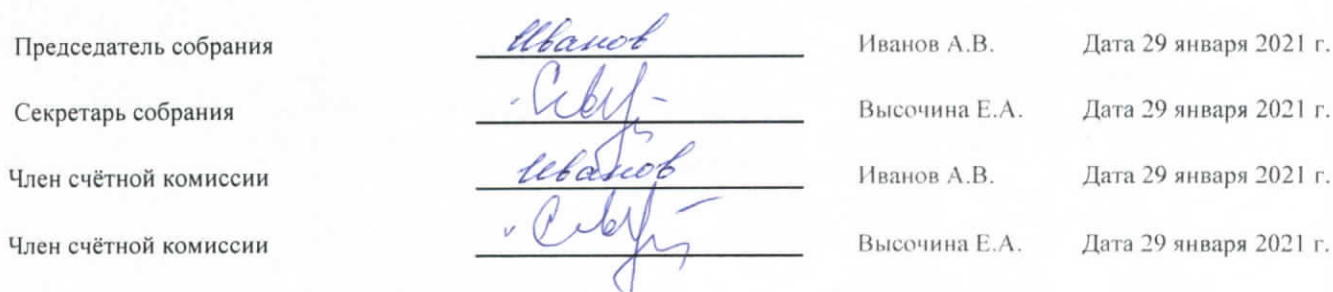 Председатель собрания Иванов Иванов А.В. Дата 29 января 2021 г.
Секретарь собрания Высочина Е.А. Дата 29 января 2021 г.
Член счётной комиссии Иванов Иванов А.В. Дата 29 января 2021 г.
Член счётной комиссии Высочина Е.А. Дата 29 января 2021 г.